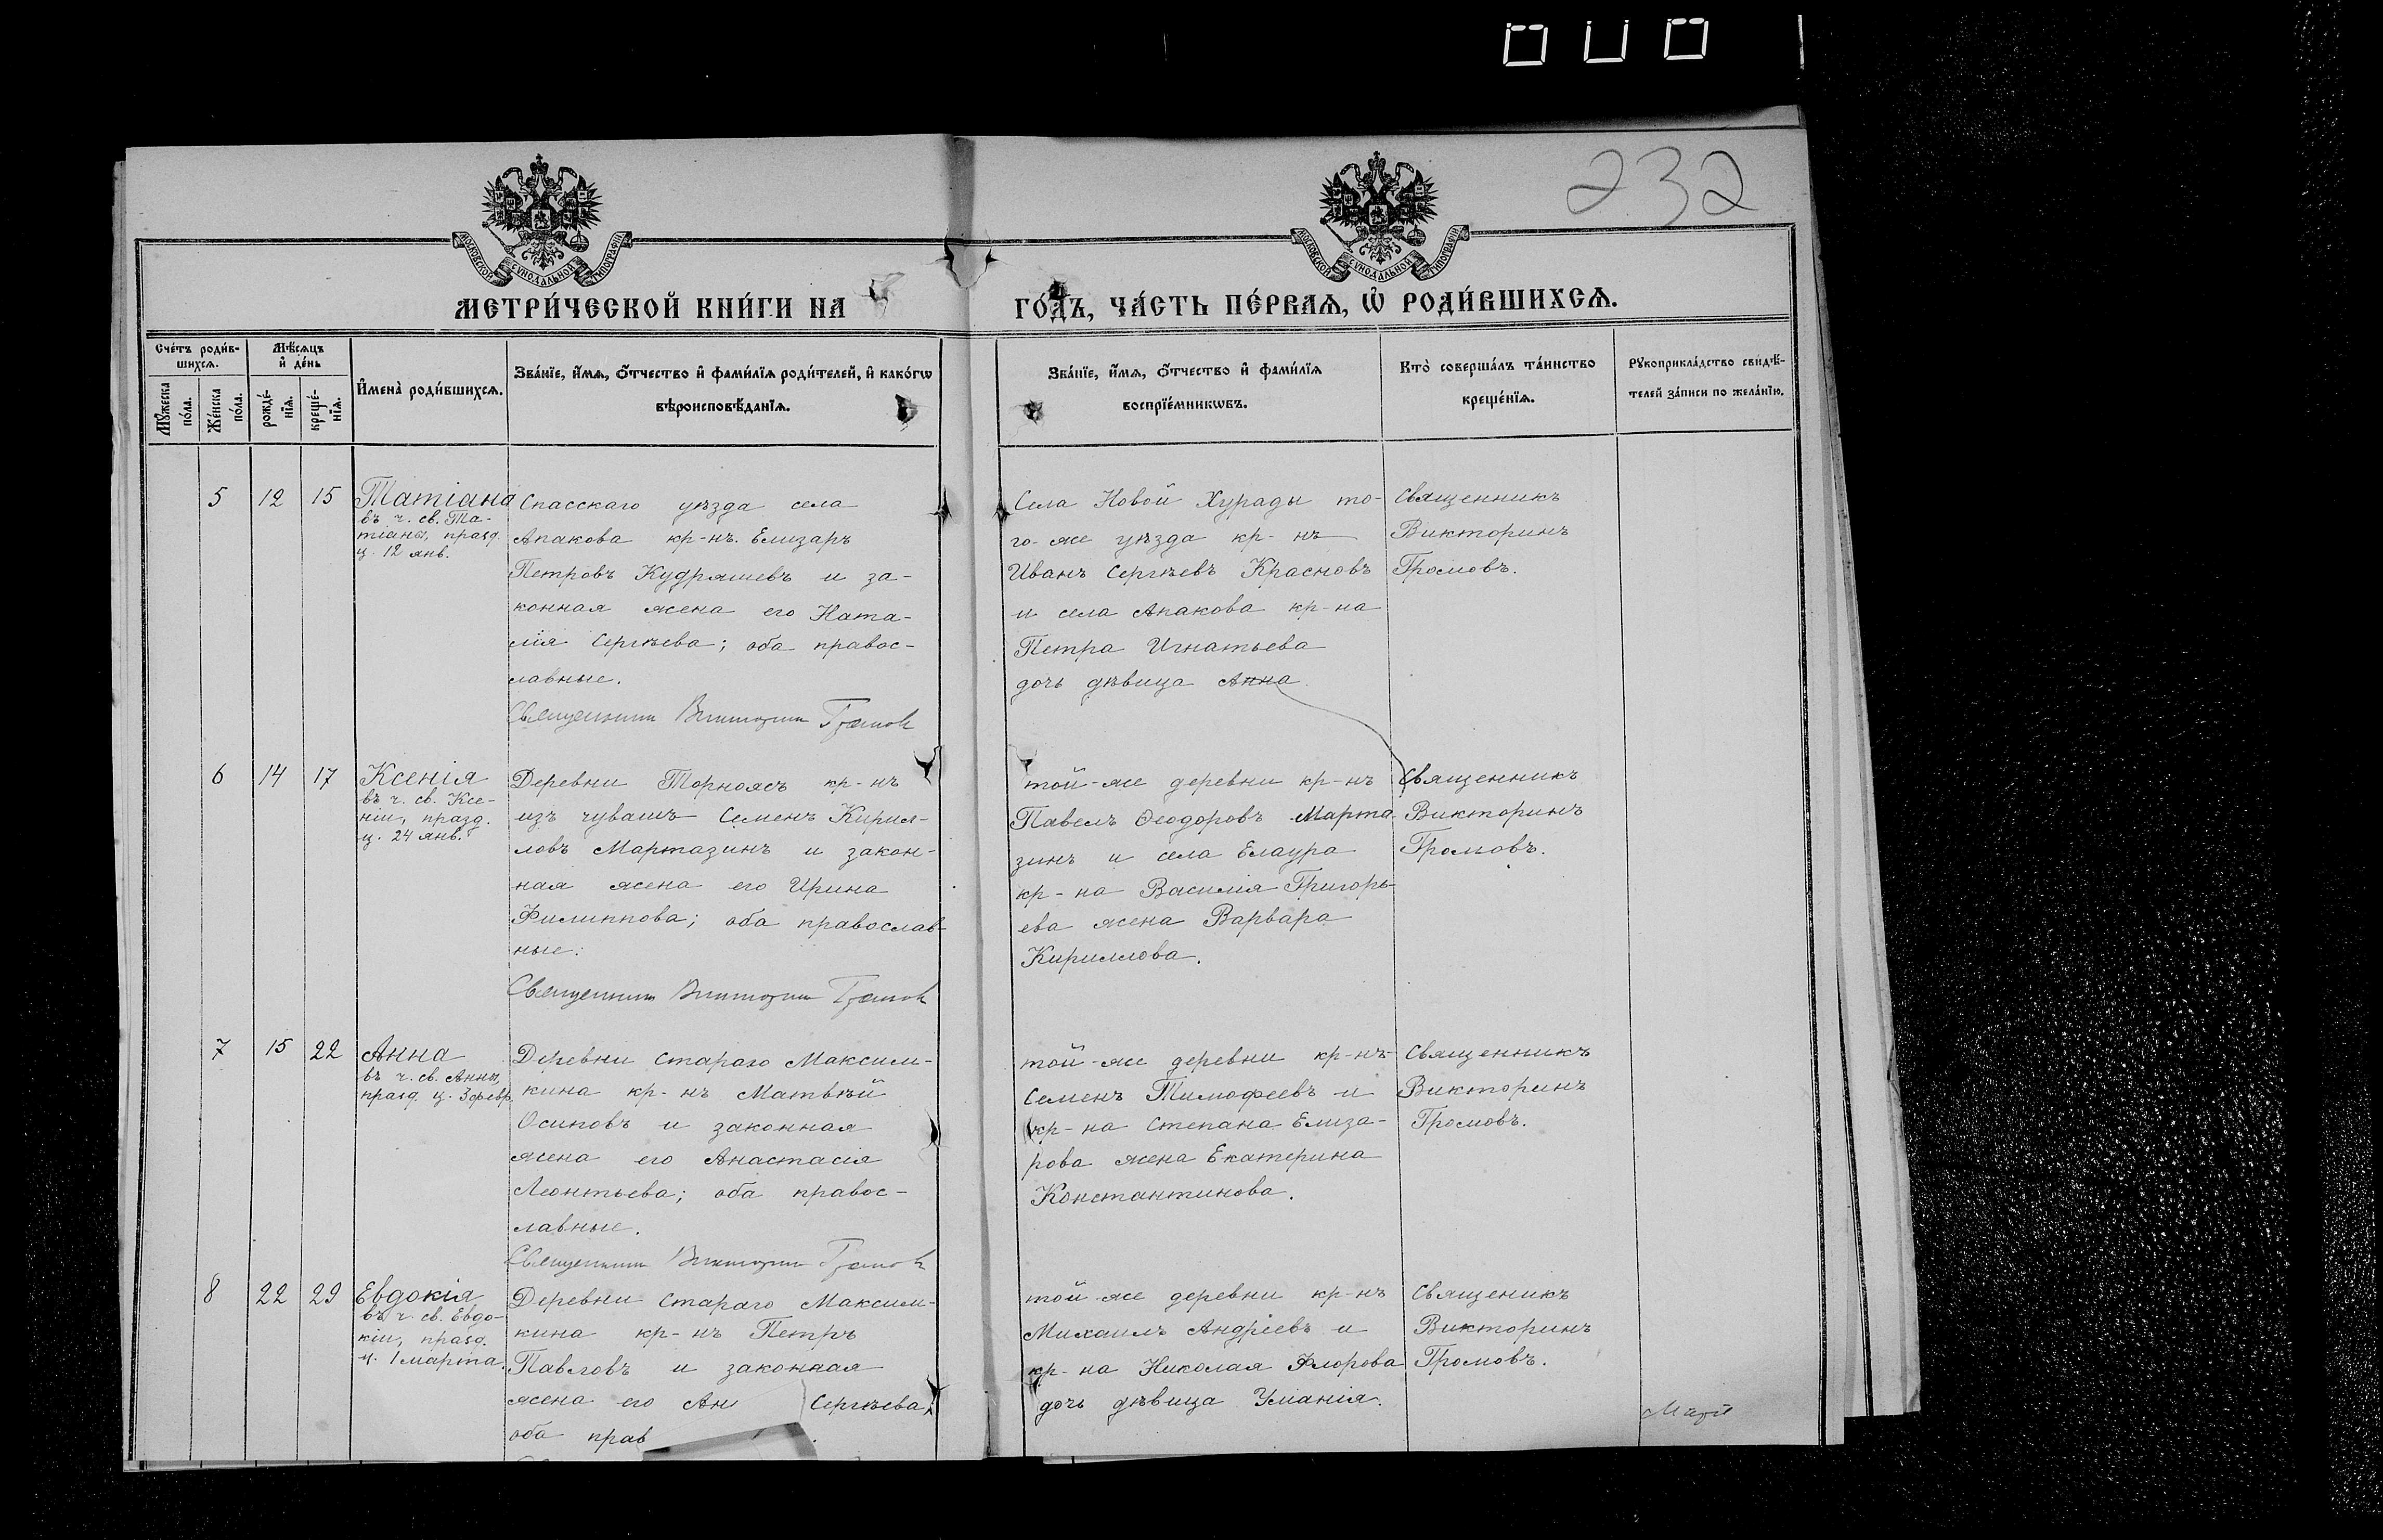 232
МОСКОВСКОЙ СУНОДАЛЬНОЙ ТИПОГРАФІИ
МОСКОВСКОЙ СУНОДАЛЬНОЙ ТИПОГРАФІИ
МЕТРИ́ЧЕСКОЙ КНИ́ГИ НА
ГО́ДЪ, ЧА́СТЬ ПЕ́РВАѦ, Ѡ҆ РОДИ́ВШИХСѦ.
Сче́тъ роди́в-
шихсѧ.
Мѣ́сѧцъ
и҆ де́нь
Мꙋ́жеска
по́ла.
Же́нска
по́ла.
рожде́-
нїѧ.
креще́-
нїѧ.
И҆мена̀ роди́вшихсѧ.
Зва́нїе, и҆́мѧ, ѻ҆́тчество и҆ фами́лїѧ роди́телей, и҆ како́гѡ
вѣроисповѣ́данїѧ.
Зва́нїе, и҆́мѧ, ѻ҆́тчество и҆ фами́лїѧ
воспрїе́мникѡвъ.
Кто̀ соверша́лъ та́инство
креще́нїѧ.
Рꙋкоприкла́дство свидѣ́-
телей за́писи по жела́нїю.
5
12
15
Татіана
въ ч. св. Та-
тіаны, празд.
ц. 12 янв.
Спасскаго уѣзда села
Апакова кр-нъ. Елизаръ
Петровъ Кудряшевъ и за-
конная жена его Ната-
лія Сергѣева; оба правос-
лавные.
Священникъ Викторинъ Громовъ
Села Новой Хурады то-
го-же уѣзда кр-нъ
Иванъ Сергѣевъ Красновъ
и села Апакова кр-на
Петра Игнатьева
дочь дѣвица Анна
Священникъ
Викторинъ
Громовъ.
6
14
17
Ксенія
въ ч. св. Ксе-
ніи, празд.
ц. 24 янв.
Деревни Торноясъ кр-нъ
изъ чувашъ Семенъ Кирил-
ловъ Мартазинъ и закон-
ная жена его Ирина
Филиппова; оба православ-
ные.
Священникъ Викторинъ Громовъ
той-же деревни кр-нъ
Павелъ Ѳеодоровъ Марта
зинъ и села Елаура
кр-на Василія Григорь-
ева жена Варвара
Кириллова.
Священникъ
Викторинъ
Громовъ.
7
15
22
Анна
въ ч. св. Анны,
празд. ц. 3 февр.
Деревни Стараго Максим-
кина кр-нъ Матвѣй
Осиповъ и законная
жена его Анастасія
Леонтьева; оба правос-
лавные.
Священникъ Викторинъ Громовъ
той-же деревни кр-нъ
Семенъ Тимофеевъ и
кр-на Степана Елиза-
рова жена Екатерина
Константинова.
Священникъ
Викторинъ
Громовъ.
8
22
29
Евдокія
въ ч. св. Евдо-
кіи, празд.
ц. 1 марта.
Деревни Стараго Максим-
кина кр-нъ Петръ
Павловъ и законная
жена его Ан Сергѣева,
оба прав
той-же деревни кр-нъ
Михаилъ Андріевъ и
кр-на Николая Флорова
дочь дѣвица Уманія.
Священикъ
Викторинъ
Громовъ.